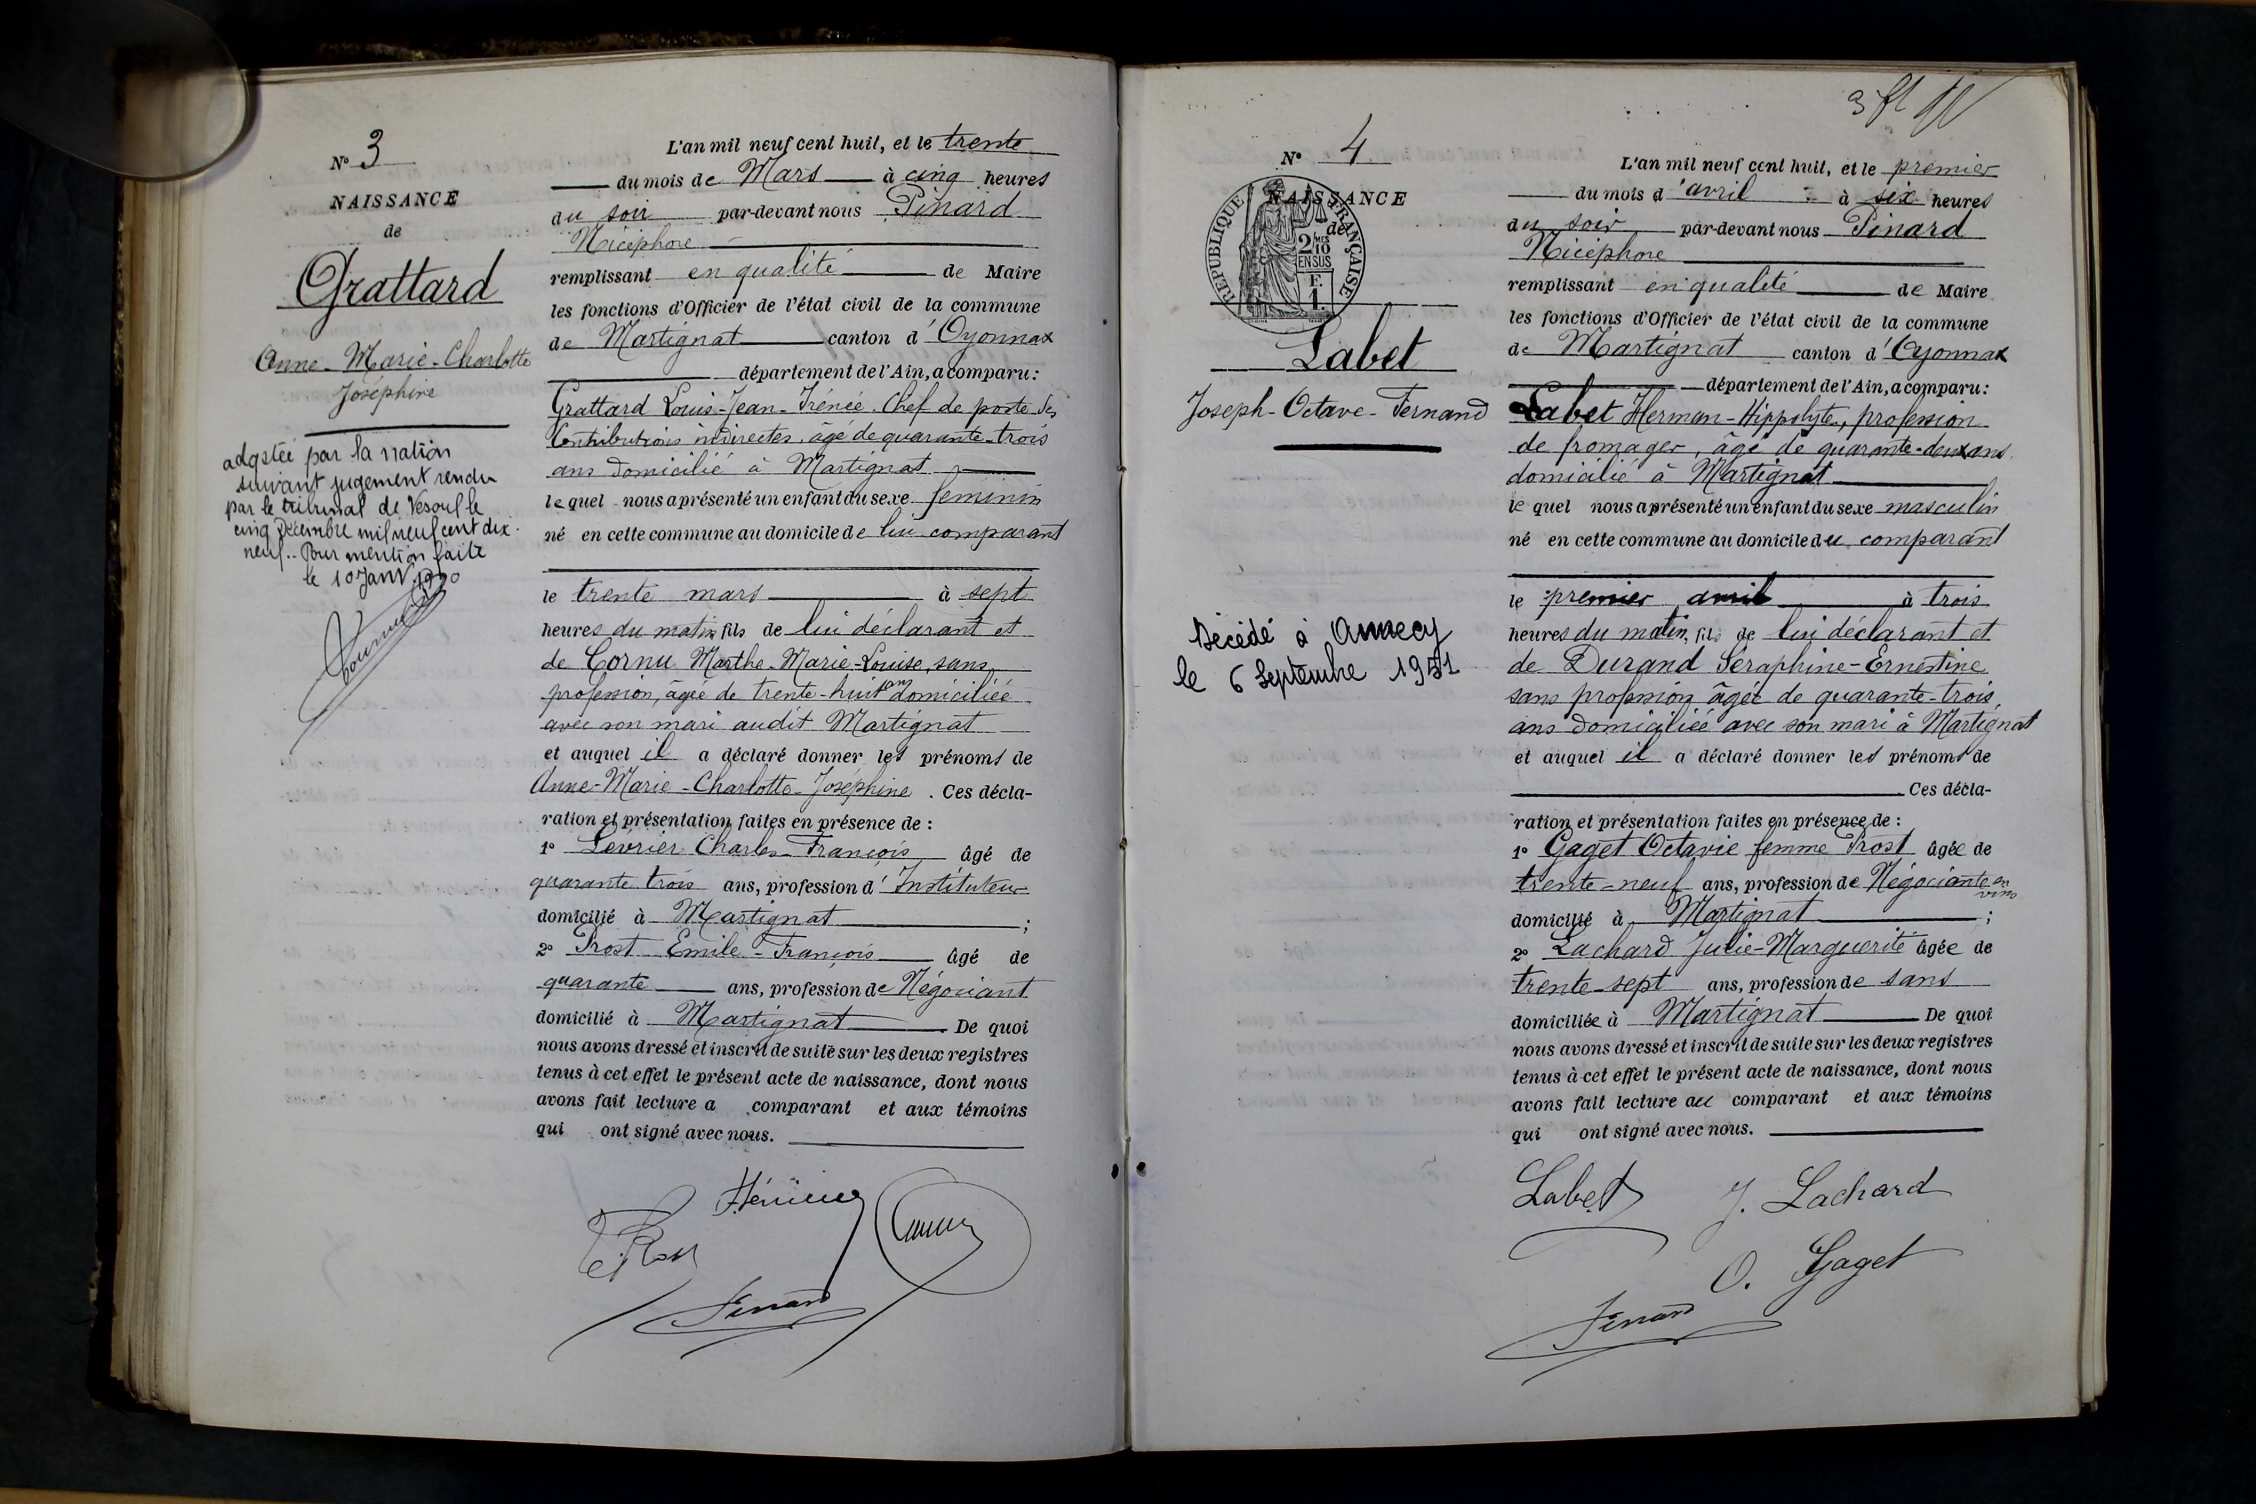 N° 3
NAISSANCE
de
Grattard
Anne-Marie-Charlotte
Joséphine
adoptée par la nation
suivant jugement rendu
par le tribunal de Vesoul le
cinq Décembre mil neuf cent dix
neuf.. Pour mention faite
le 10 Janv. 1920
L'an mil neuf cent huit, et le trente
du mois de Mars à cinq heures
du soir par-devant nous Pinard
Nicéphore
remplissant en qualité de Maire
les fonctions d'Officier de l'état civil de la commune
de Martignat canton d'Oyonnax
département de l'Ain, a comparu:
Grattard Louis-Jean-Irénée. Chef de poste des
Contributions indirectes, âgé de quarante-trois
ans domicilié à Martignat
lequel nous a présenté un enfant du sexe feminin
né en cette commune au domicile de lui comparant
le trente mars à sept
heures du matin, fils de lui déclarant et
de Cornu Marthe-Marie-Louise, sans
profession, âgée de trente-huit ans domiciliée
avec son mari audit Martignat
et auquel il a déclaré donner les prénoms de
Anne-Marie-Charlotte-Joséphine. Ces décla-
ration et présentation faites en présence de :
1° Levrier Charles-François âgé de
quarante trois ans, profession d'Instituteur
domicilié à Martignat ;
2° Prost Emile-François âgé de
quarante ans, profession de Négociant
domicilié à Martignat De quoi
nous avons dressé et inscrit de suite sur les deux registres
tenus à cet effet le présent acte de naissance, dont nous
avons fait lecture a comparant et aux témoins
qui ont signé avec nous.
Pinard
N° 4
NAISSANCE
de
RÉPUBLIQUE FRANÇAISE
2/10
EN SUS
F.
1.
Labet
Joseph-Octave-Fernand
Décédé à Annecy
le 6 Septembre 1951
L'an mil neuf cent huit, et le premier
du mois d'avril à six heures
du soir par-devant nous Pinard
Nicéphore
remplissant en qualité de Maire
les fonctions d'Officier de l'état civil de la commune
de Martignat canton d'Oyonnax
département de l'Ain, a comparu:
Labet Herman-Hippolyte, profession
de fromager, âgé de quarante-deux ans
domicilié à Martignat
lequel nous a présenté un enfant du sexe masculin
né en cette commune au domicile du comparant
le premier avril à trois
heures du matin, fils de lui déclarant et
de Durand Séraphine-Ernestine
sans profession âgée de quarante-trois
ans domiciliée avec son mari à Martignat
et auquel il a déclaré donner les prénoms de
Ces décla-
ration et présentation faites en présence de :
1° Gaget Octavie femme Prost âgée de
trente-neuf ans, profession de Négociante en
vins
domicilié à Martignat ;
2° Lachard Julie-Marguerite âgée de
trente-sept ans, profession de sans
domiciliée à Martignat De quoi
nous avons dressé et inscrit de suite sur les deux registres
tenus à cet effet le présent acte de naissance, dont nous
avons fait lecture au comparant et aux témoins
qui ont signé avec nous.
Labet J. Lachard
O. Gaget
Pinard